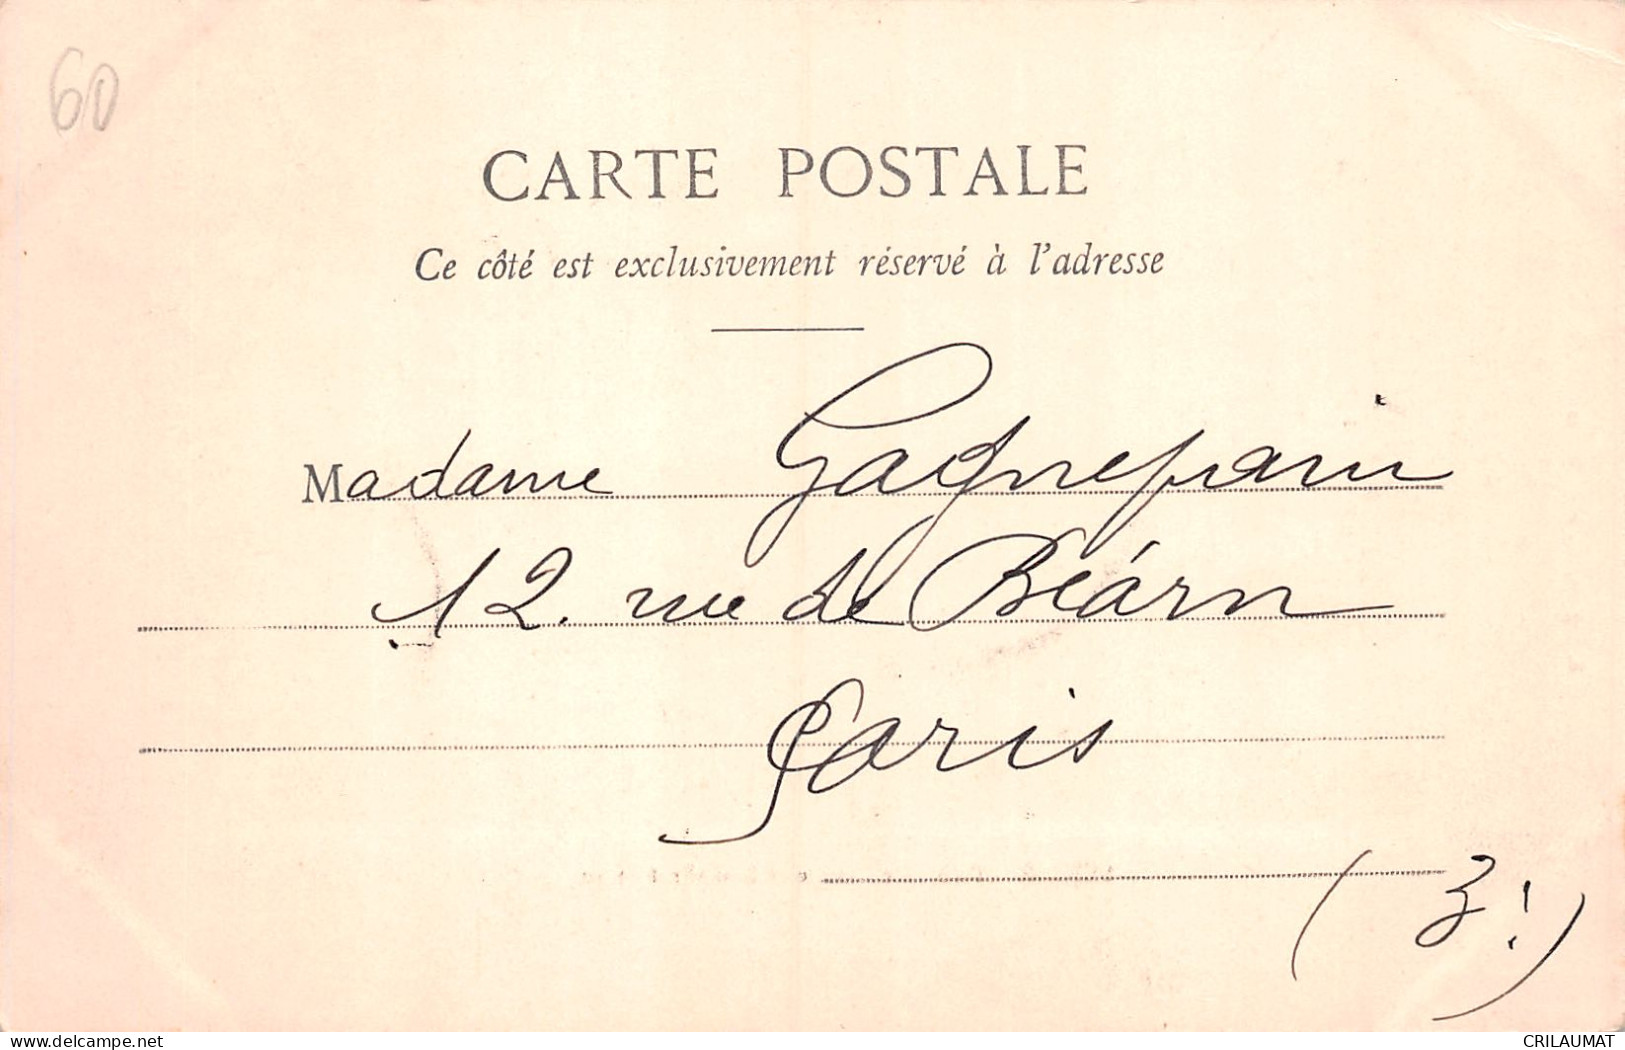 60
CARTE POSTALE
Ce côté est exclusivement réservé à l'adresse
Madame Gagnepain
12. rue de Béarn
Paris
(3!)
delcampe.net
CRILAUMAT